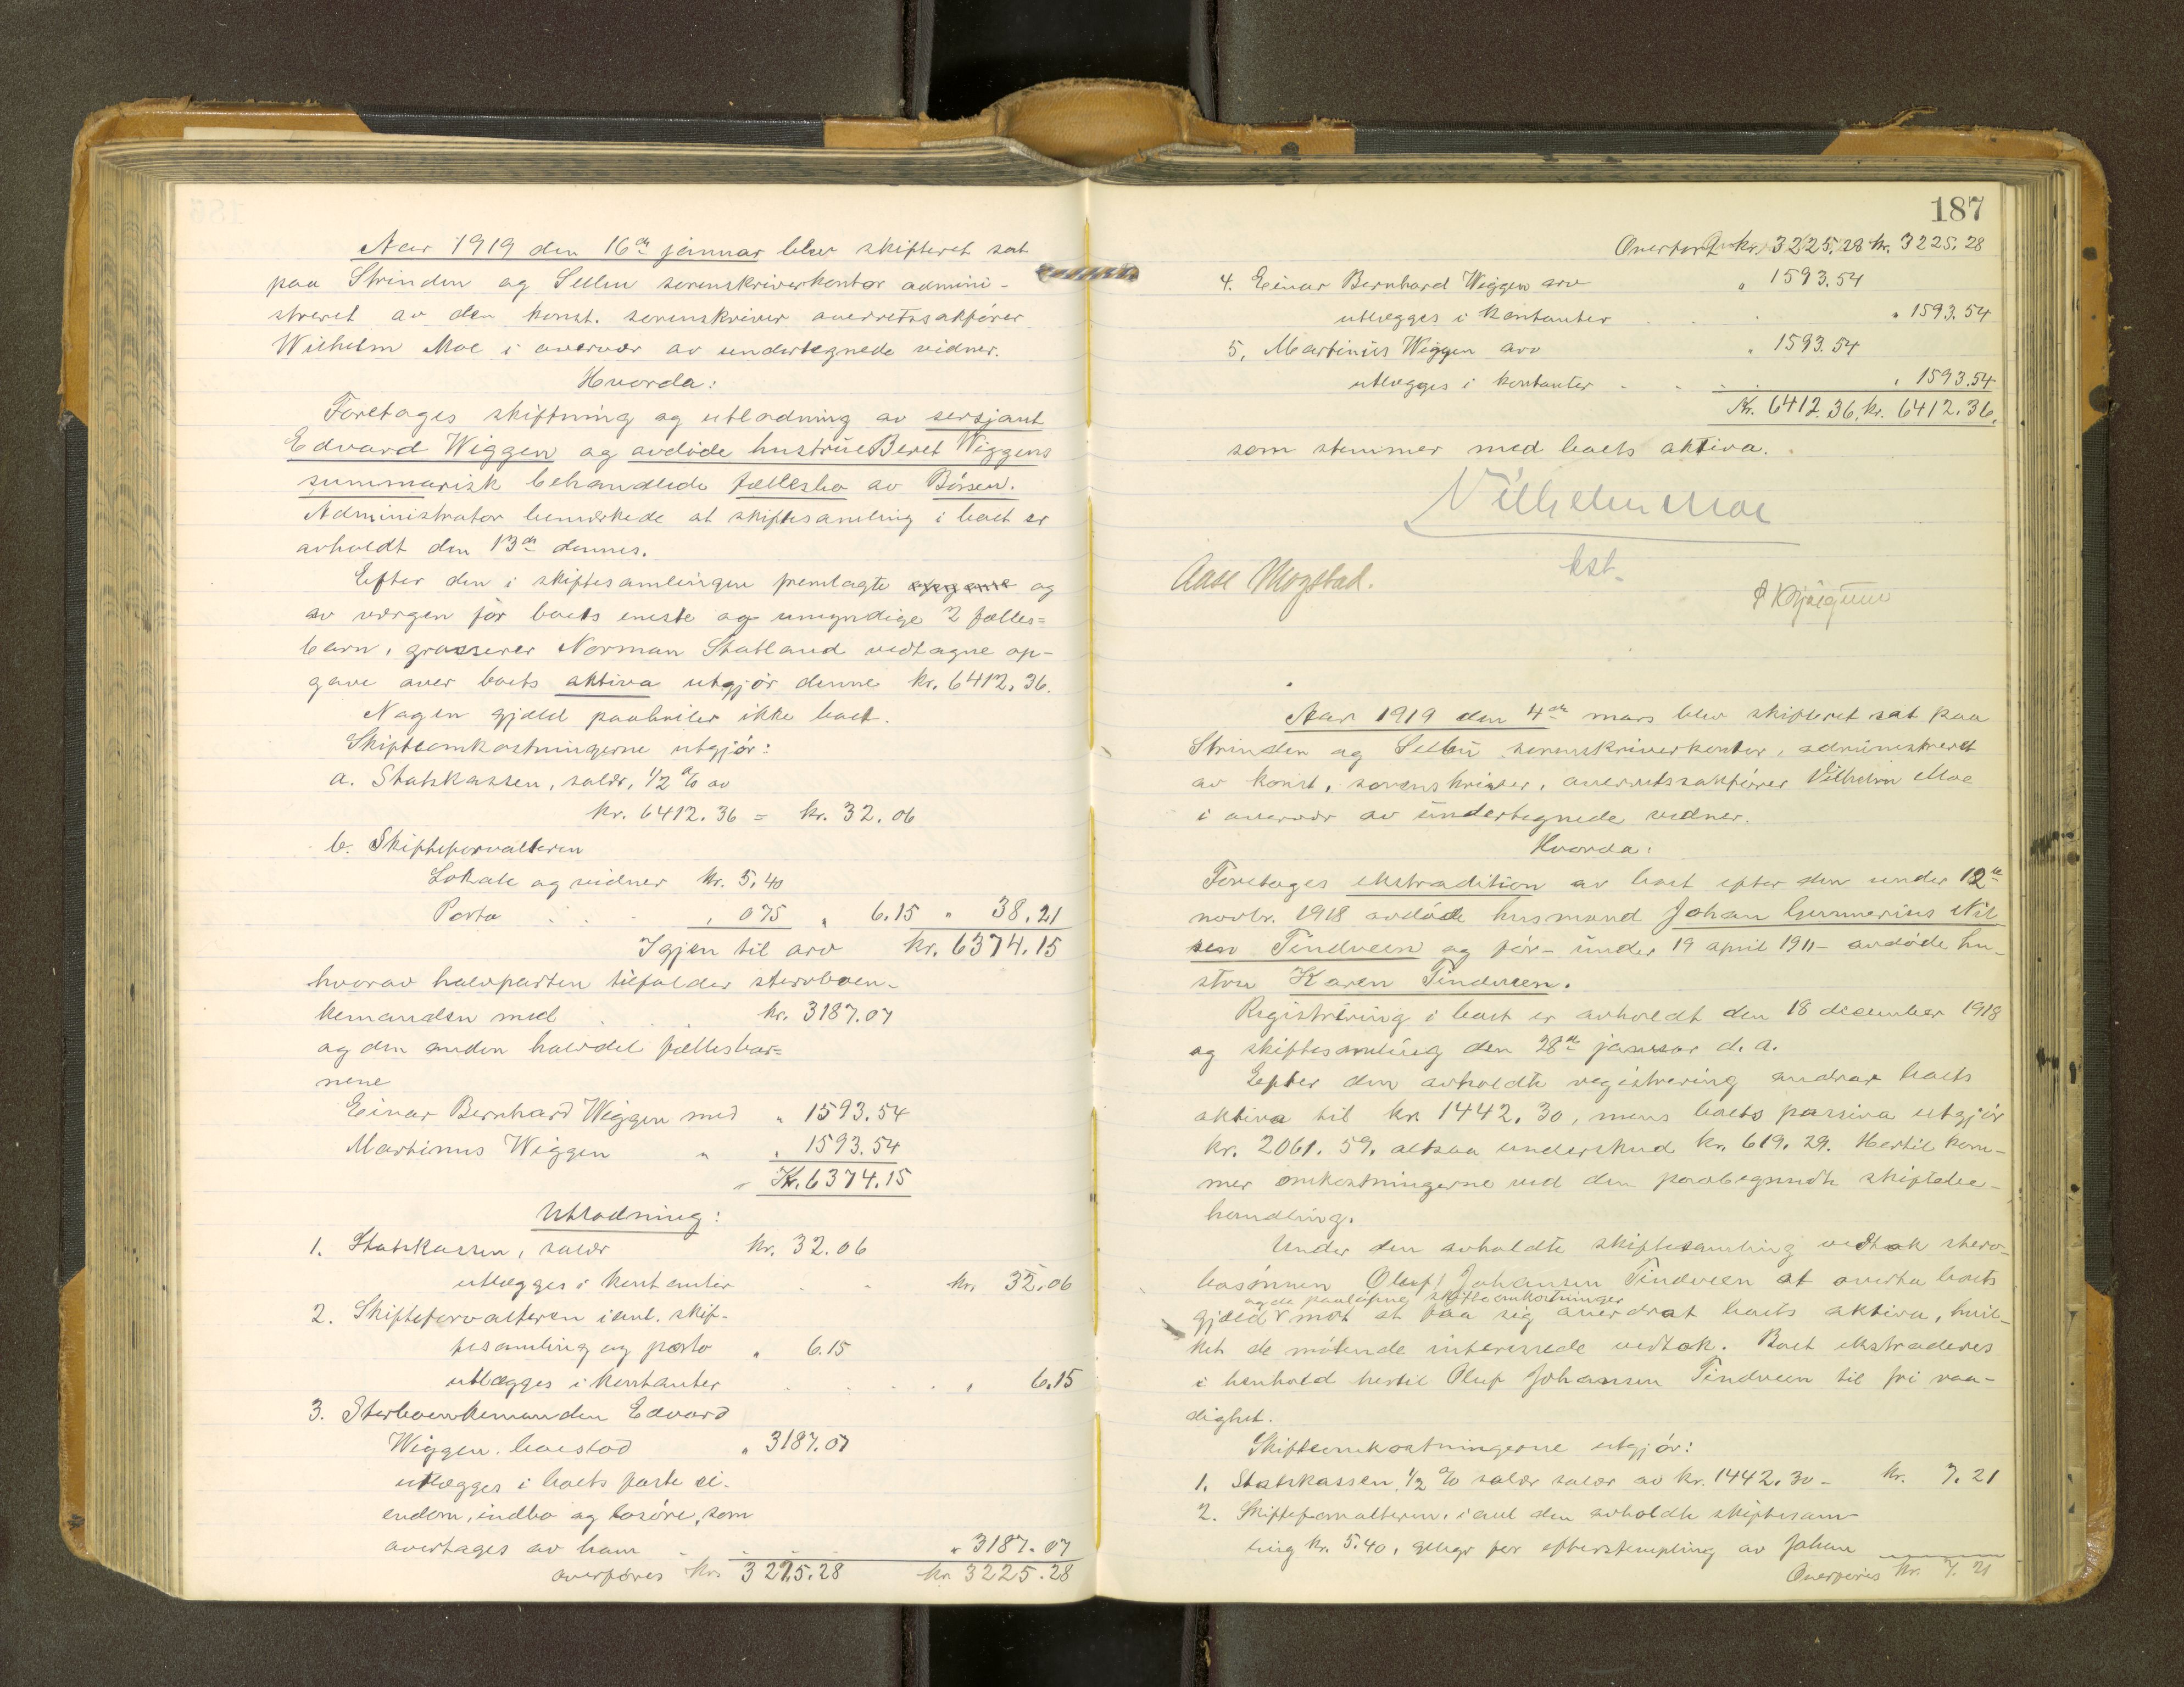 Aar 1919 den 16de januar blev skifteret sat
paa Strinden og Selbu sorenskriverkontor admini-
streret av den konst. sorenskriver overretssakfører
Wilhelm Moe i overvær av undertegnede vidner.
Hvorda:
Foretages skiftning og utlodning av sersjant
Edvard Wiggen og avdöde hustrue Beret Wiggens
summarisk behandlede fællesbo av Börsen.
Administrator bemerkede at skiftesamling i boet er
avholdt den 13de dennes.
Efter den i skiftesamlingen fremlagte og
av værgen for boets eneste og umyndige 2 fælles=
barn, grosserer Norman Statland vedtagne op-
gave over boets aktiva utgjør denne kr. 6412,36.
Nogen gjæld paahviler ikke boet.
Skifteomkostningerne utgjör:
a. Statskassen, salær, 1/2 % av
kr. 6412.36 = kr. 32.06
b. Skifteforvalteren
Lokale og vidner kr. 5,40
Porto . . . , 075 " 6.15 " 38.21
Igjen til arv kr. 6374.15
hvorav halvparten tilfalder stervboen-
kemanden med . . . kr. 3187.07
og den anden halvdel fællesbar=
nene
Einar Bernhard Wiggen med " 1593.54
Martinus Wiggen " " 1593.54
Kr. 6374.15
Utlodning:
1. Statskassen, salær kr. 32.06
utlægges i kontanter . . kr. 32.06
2. Skifteforvalteren i anl. skif-
tesamling og porto " 6.15
utlægges i kontanter . . . . , 6,15
3. Sterboenkemanden Edvard
Wiggen. boeslod " 3187.07
utlægges i boets faste ei-
endom, indbo og løsøre, som
overtages av ham " 3187.07
overføres kr. 3225.28 kr. 3225.28
187
Overført kr. 3225,28 kr. 3225.28
4. Einar Bernhard Wiggen arv " 1593.54
utlægges i kontanter . . " 1593.54
5, Martinus Wiggen arv " 1593.54
utlægges i kontanter - - - . , 1593.54
Kr. 6412.36, kr. 6412.36,
som stemmer med boets aktiva.
Vilhelm Moe
kst.
Aase Mogstad.
Aar 1919 den 4de mars blev skifteret sat paa
Strinden og Selbu sorenskriverkontor, administreret
av konst, sorenskriver, overretssakfører Vilhelm Moe
i overvær av undertegnede vidner.
Hvorda:
Foretages ekstradition av boet efter den under 12te
novbr. 1918 avdöde husmand Johan Gunnerius Nil
sen Tindveen og før- under 19 april 1911- avdöde hu-
stru Karen Tindveen.
Registrering i boet er avholdt den 18 december 1918
og skiftesamling den 28de januar d. a.
Efter den avholdte registrering andrar boets
aktiva til kr. 1442,30, mens boets passiva utgjör
kr. 2061.59, altsaa underskud kr. 619,29. Hertil kom-
mer omkostningerne ved den paabegyndte skiftebe-
handling.
Under den avholdte skiftesamling vedtok sterv-
bosønnen Oluf Johansen Tindveen at overta boets
og de paaløpne skifteomkostninger
gjæld v mot at faa sig overdrat boets aktiva, hvil-
ket de mötende interesserede vedtok. Boet ekstraderes
i henhold hertil Oluf Johansen Tindveen til fri raa-
dighet.
Skifteomkostningerne utgjör:
1. Statskassen, 1/2 % salær salær av kr. 1442.30 - kr. 7.21
2. Skifteforvalteren, i anl den avholdte skiftesam-
ling kr. 5.40, gebyr for efterstempling av Johan
Overføres kr. 7.21